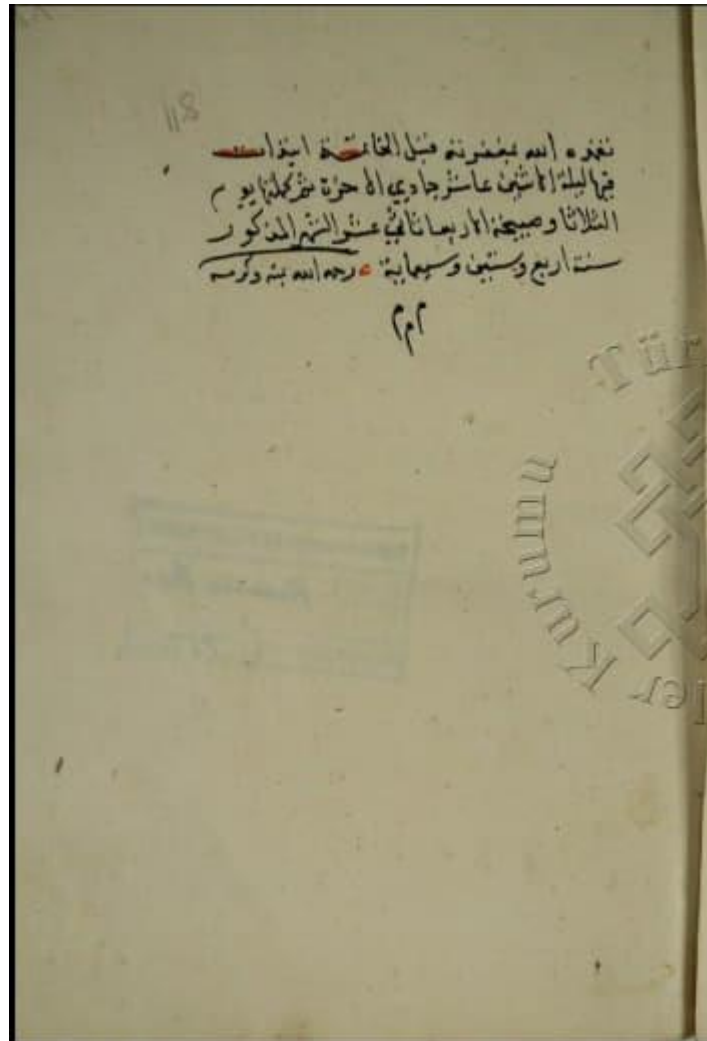 118
تغمده الله بمغفرته قبل الخاتمة ابتدات
فيها ليلة الاثنين عاشر جمادي الاخرة ثم كملتها يوم
الثلاثا وصبيحة الاربعا ثاني عشر الشهر المذكور
سنة اربع وستين وسبعماية رحمه الله بمنه وكرمه
م م م